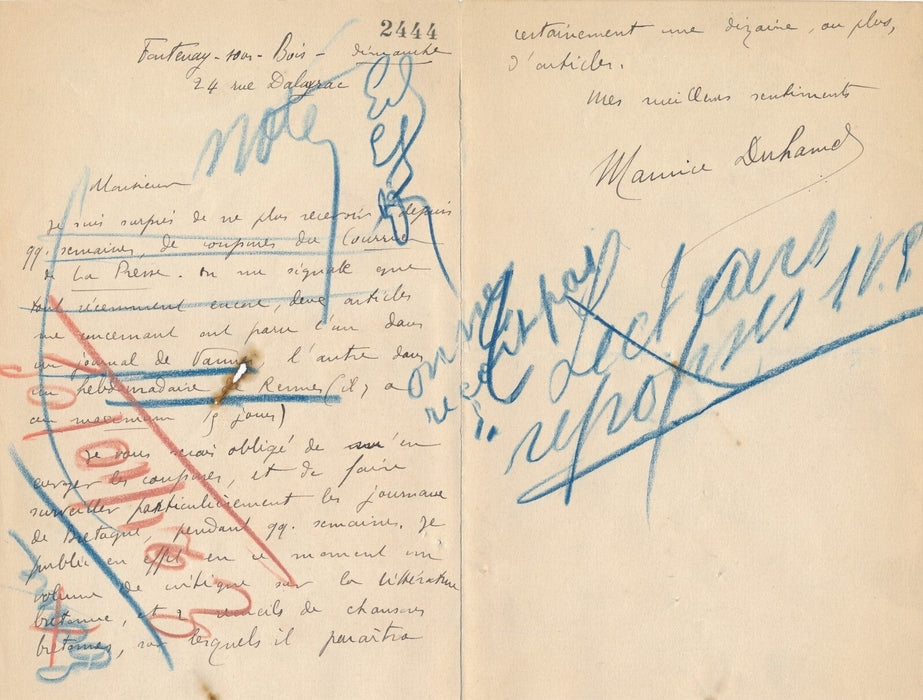 2444
Fontenay-sous-Bois - dimanche
24 rue Dalayrac
noté
Monsieur
Je suis surpris de ne plus recevoir, depuis
qq. semaines, de coupures du Courrier
de La Presse. On me signale que
tout récemment encore, deux articles
me concernant ont paru l'un dans
un journal de Vannes l'autre dans
un hebdomadaire de Rennes (il y a
au maximum 15 jours)
Je vous serais obligé de m'en
envoyer les coupures, et de faire
surveiller particulièrement les journaux
de Bretagne, pendant qq. semaines. Je
publie en effet en ce moment un
volume de critique sur la littérature
bretonne, et 2 recueils de chansons
bretonnes, sur lesquels il paraîtra
certainement une dizaine, ou plus,
d'articles.
Mes meilleurs sentiments
Maurice Duhamel
on ne
reçoit pas
Lecteurs
réponses